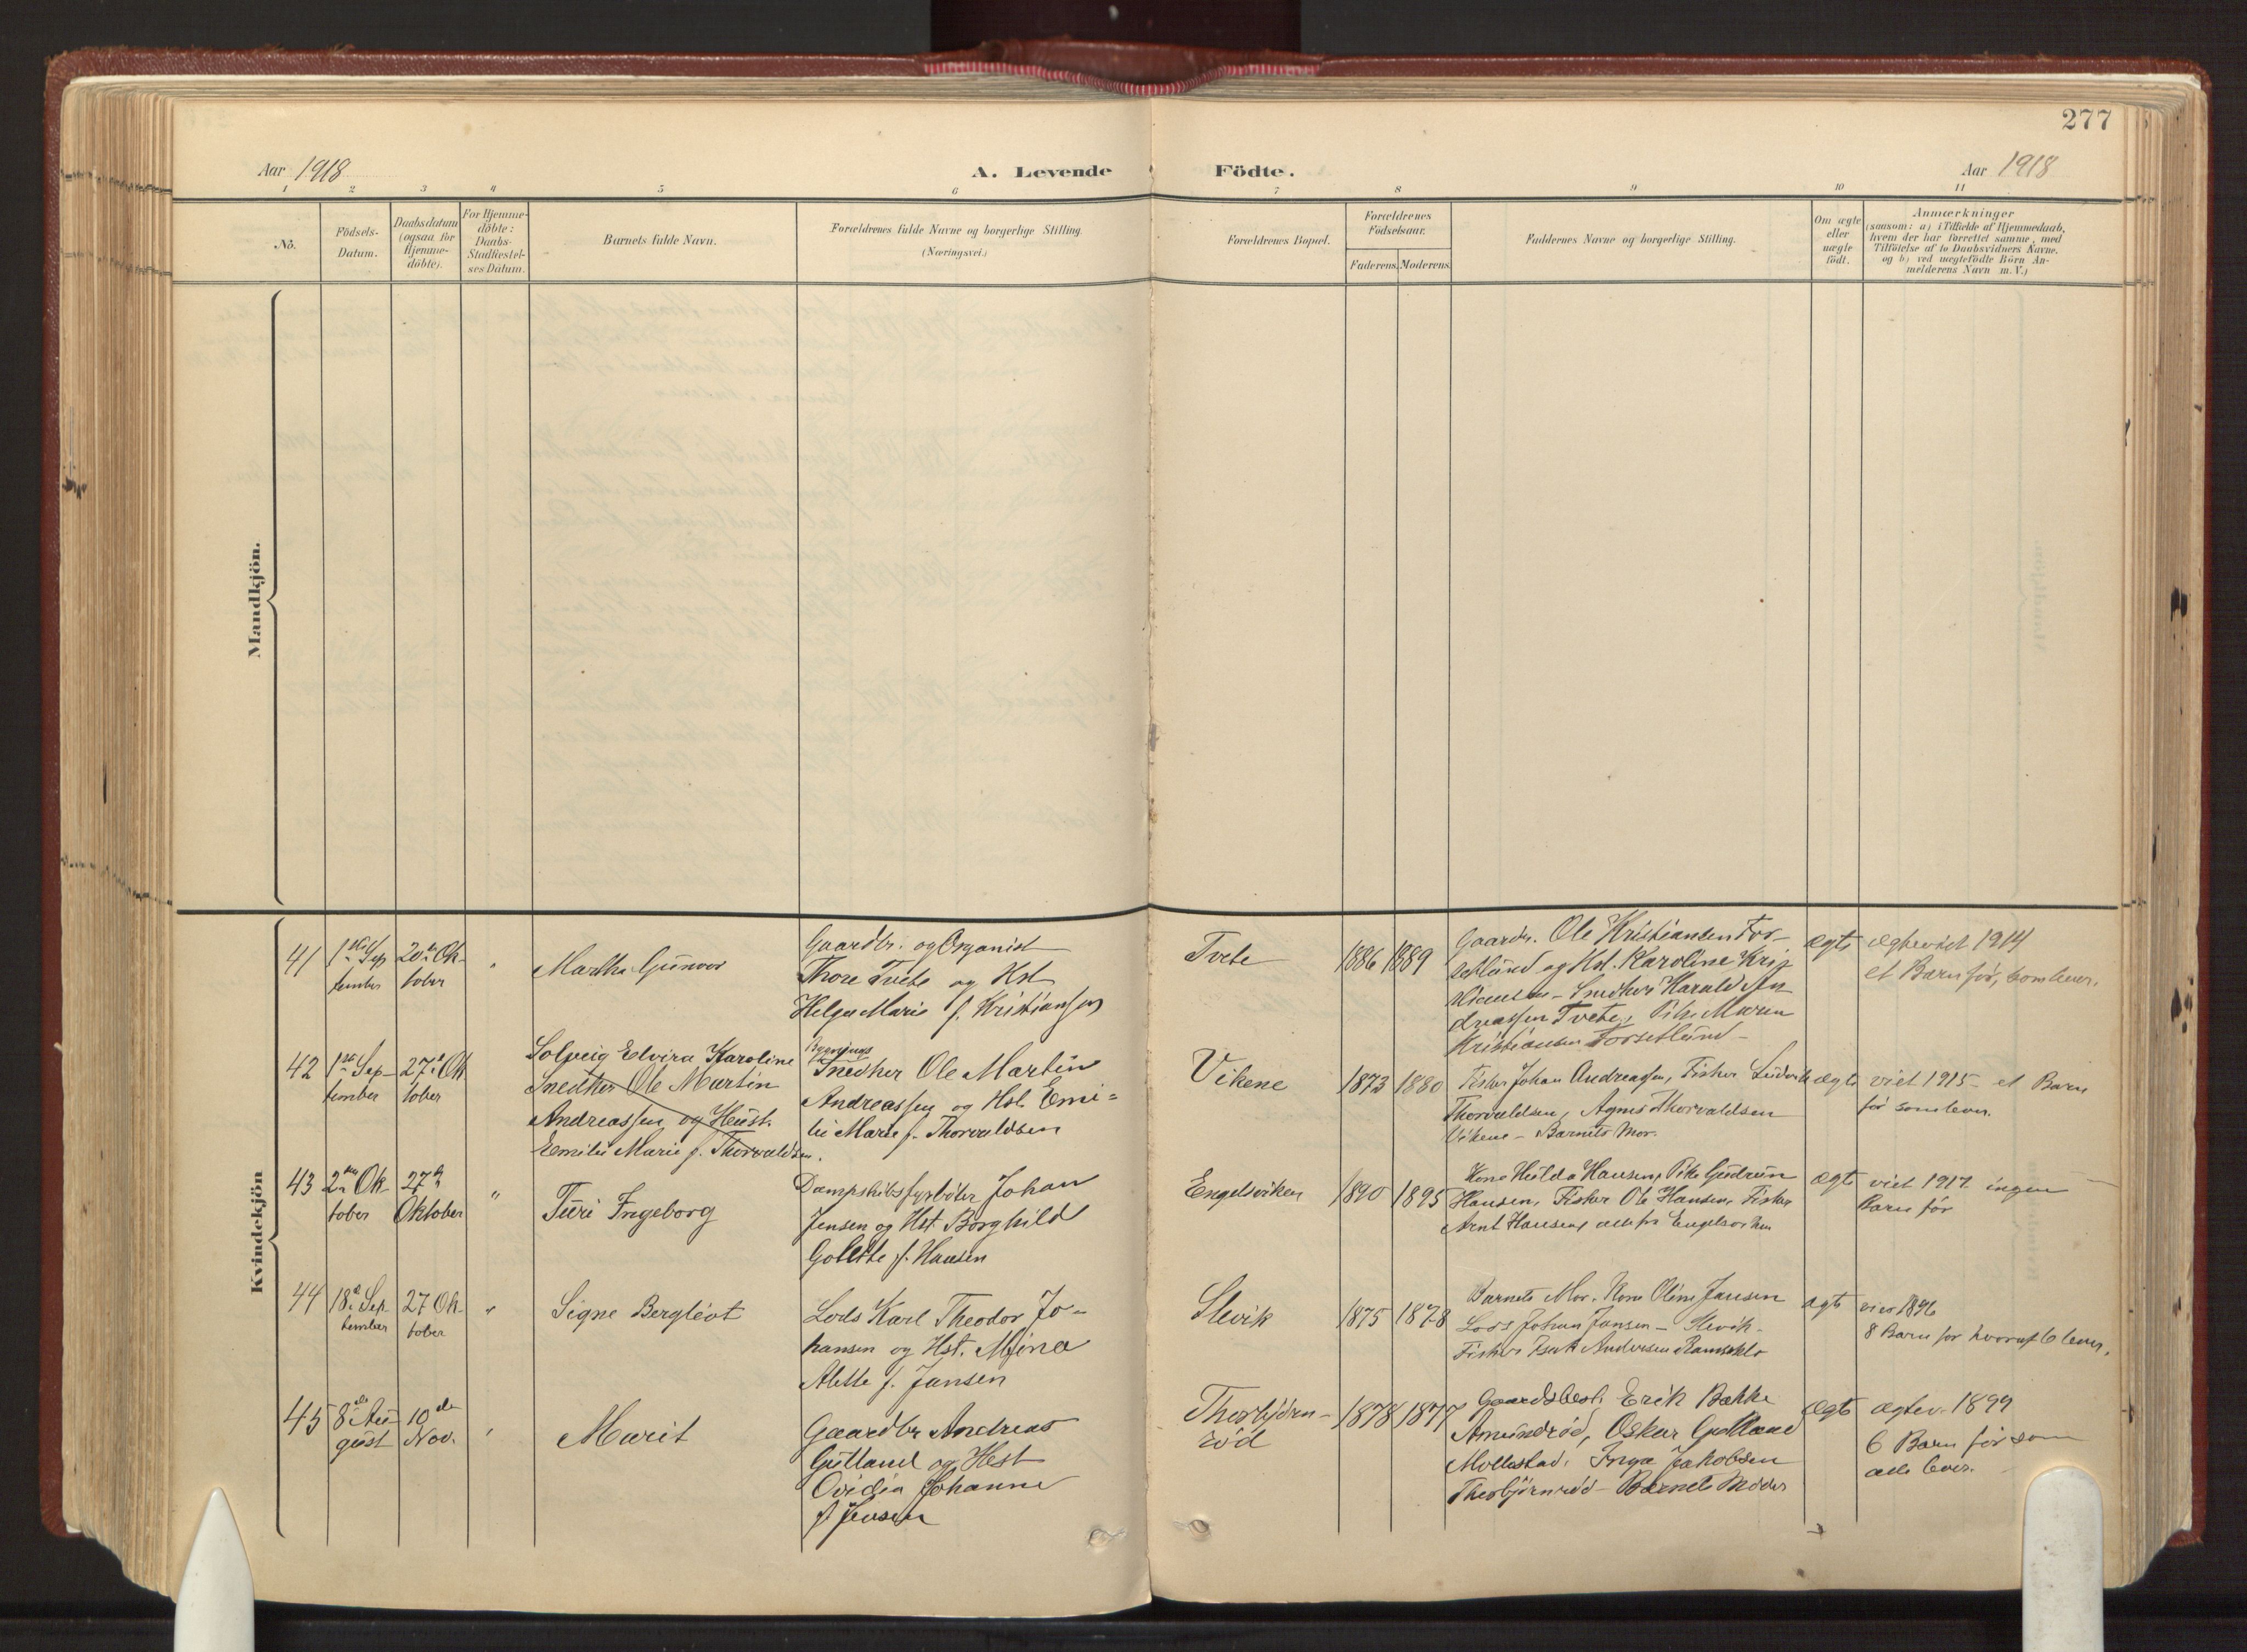 277
Aar 1918
A. Levende Födte.
Aar 1918
1 2 3 4 5 6 7 8 9 10 11
No.
Födsels-
Datum.
Daabsdatum
(ogsaa for
Hjemme-
döbte).
For Hjemme-
döbte:
Daabs-
Stadfæstel-
ses Datum.
Barnets fulde Navn.
Forældrenes fulde Navne og borgerlige Stilling.
(Næringsvei.)
Forældrenes Bopæl.
Forældrenes
Födselsaar.
Faderens. Moderens.
Faddernes Navne og borgerlige Stilling.
Om ægte
eller
uægte
födt.
Anmærkninger
(saasom: a) i Tilfælde af Hjemmedaab,
hvem der har forrettet samme, med
Tilföielse af to Daabsvidners Navne,
og b) ved uægtefödte Börn An-
melderens Navn m. V.)
Mandkjön.
Kvindekjön
41
1ste Sep
tember
20de Ok-
tober
"
Martha Gunvor
Gaardbr. og Organist
Thore Tvete og Hst
Helga Marie f. Kristiansen
Tvete
1886
1889
Gaardbr. Ole Kristiansen Tor-
setlund og Hst. Karoline Kri-
stiansen - Snedker Harald An
dreassen Tvete, Pike Maren
Kristiansen Torsetlund -
ægte
ægteviet 1914
et Barn før, som lever.
42
1ste Sep-
tember
27de Ok
tober
Solveig Elvira Karoline
Snedker Ole Martin
Andreassen og Hust.
Emilie Marie f. Thorvaldsen.
Bygnings
Snedker Ole Martin
Andreassen og Hst. Emi=
lie Marie f. Thorvaldsen
Vikene
1873
1880
Fisker Johan Andreassen, Fisker Ludvik
Thorvaldsen, Agnes Thorvaldsen
Vikene - Barnets Mor.
ægte
viet 1915 - et Barn
før som lever.
43
2den Ok-
tober
27de
Oktober
"
Turi Ingeborg
Dampskibsfyrböter Johan
Jensen og Hst. Borghild
Golette f. Hansen
Engelsviken
1890
1895
Kone Hulda Hansen, Pike Gudrun
Hansen, Fisker Ole Hansen, Fisker
Arnt Hansen, alle fra Engelsviken
ægte
viet 1917. ingen
Barn før
44
18de Sep-
tember
27 Ok-
tober
"
Signe Bergliot
Lods Karl Theodor Jo-
hansen og Hst. Mina
Alette f. Jansen
Slevik
1875
1878
Barnets Mor. Kone Oline Jansen
Lods Johan Jansen - Slevik -
Fisker Isak Andersen Ramseklo
ægte
viet 1896
8 Barn før hvoraf 6 lever.
45
8de Au-
gust
10de
Nov.
"
Marit
Gaardbr Andreas
Gutland og Hust
Ovidia Johanne
f Jensen
Thorbjørn-
rød
1878
1877
Gaardsbest. Erik Bakke
Amundrød, Oskar Gutland
Mollestad. Inga Jakobsen
Thorbjørnrød - Barnets Moder
ægte
ægtev. 1899
6 Barn før som
alle lever.